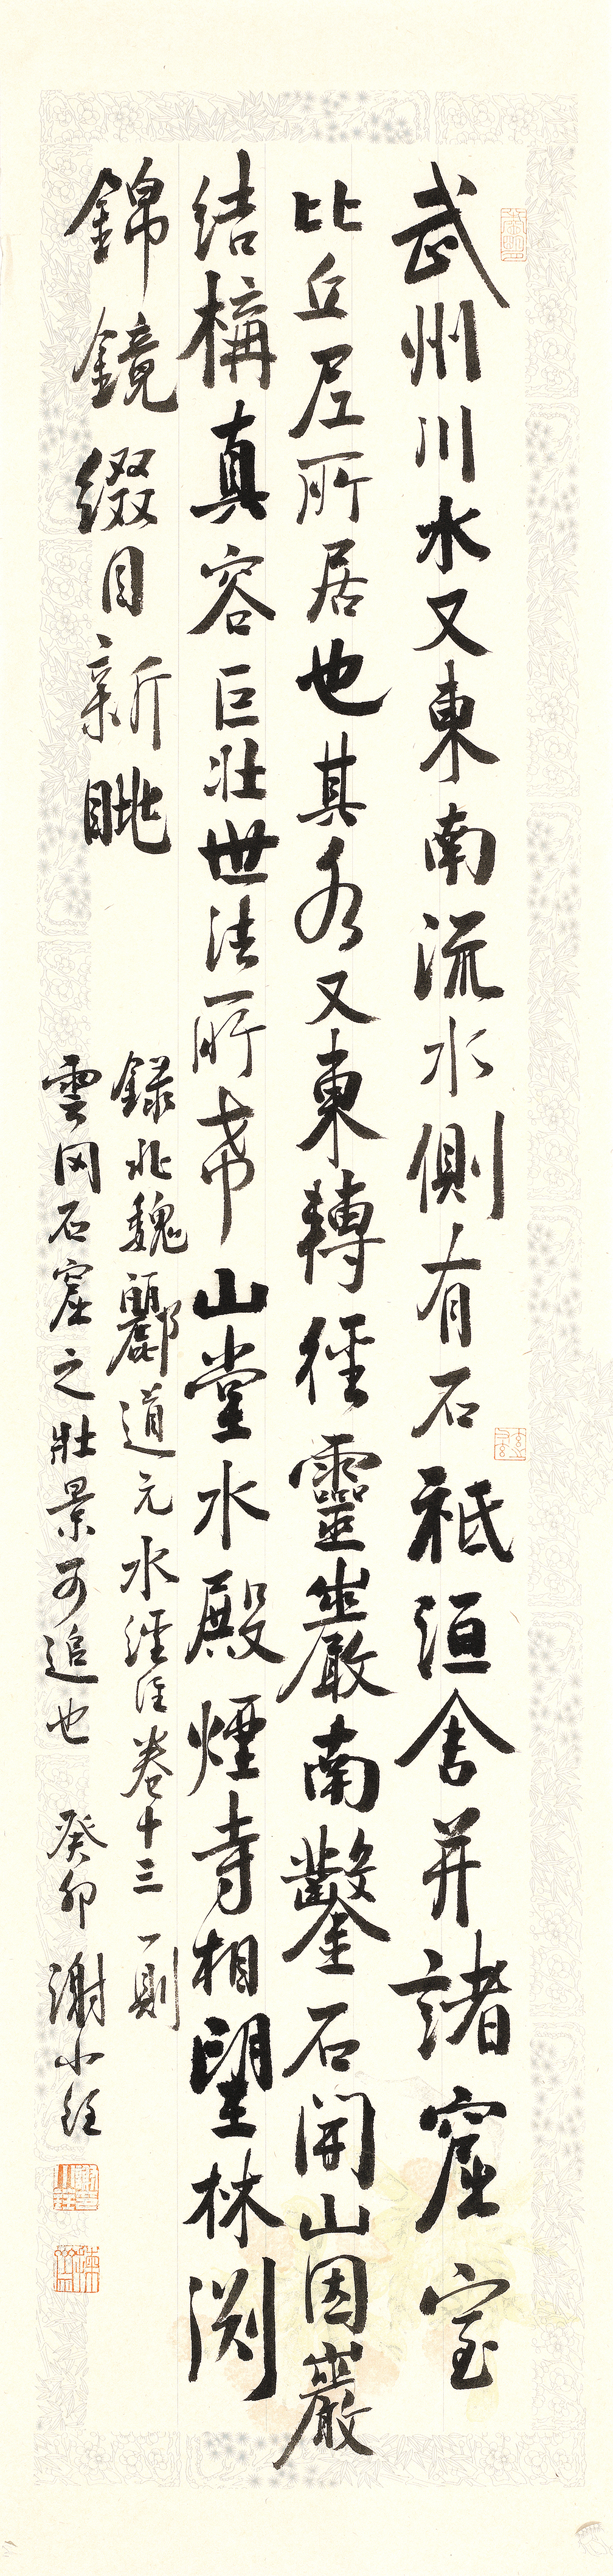 武州川水又東南流水側有石祇洹舍并諸窟室
比丘尼所居也其水又東轉徑靈巖南鑿石開山因巖
結構真容巨壯世法所希山堂水殿煙寺相望林淵
錦鏡綴目新眺
錄北魏酈道元水經注卷十三一則
雲岡石窟之壯景可追也 癸卯 謝小銓